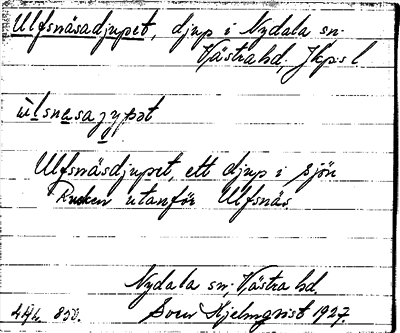 Ulfsnäsadjupet, djup i Nydala sn.
Västra hd, Jkps l.
ùlsnesajypət
Ulfsnäsdjupet, ett djup i sjön
Rusken utanför Ulfsnäs.
Nydala sn. Västra hd
Sven Hjelmqvist 1927